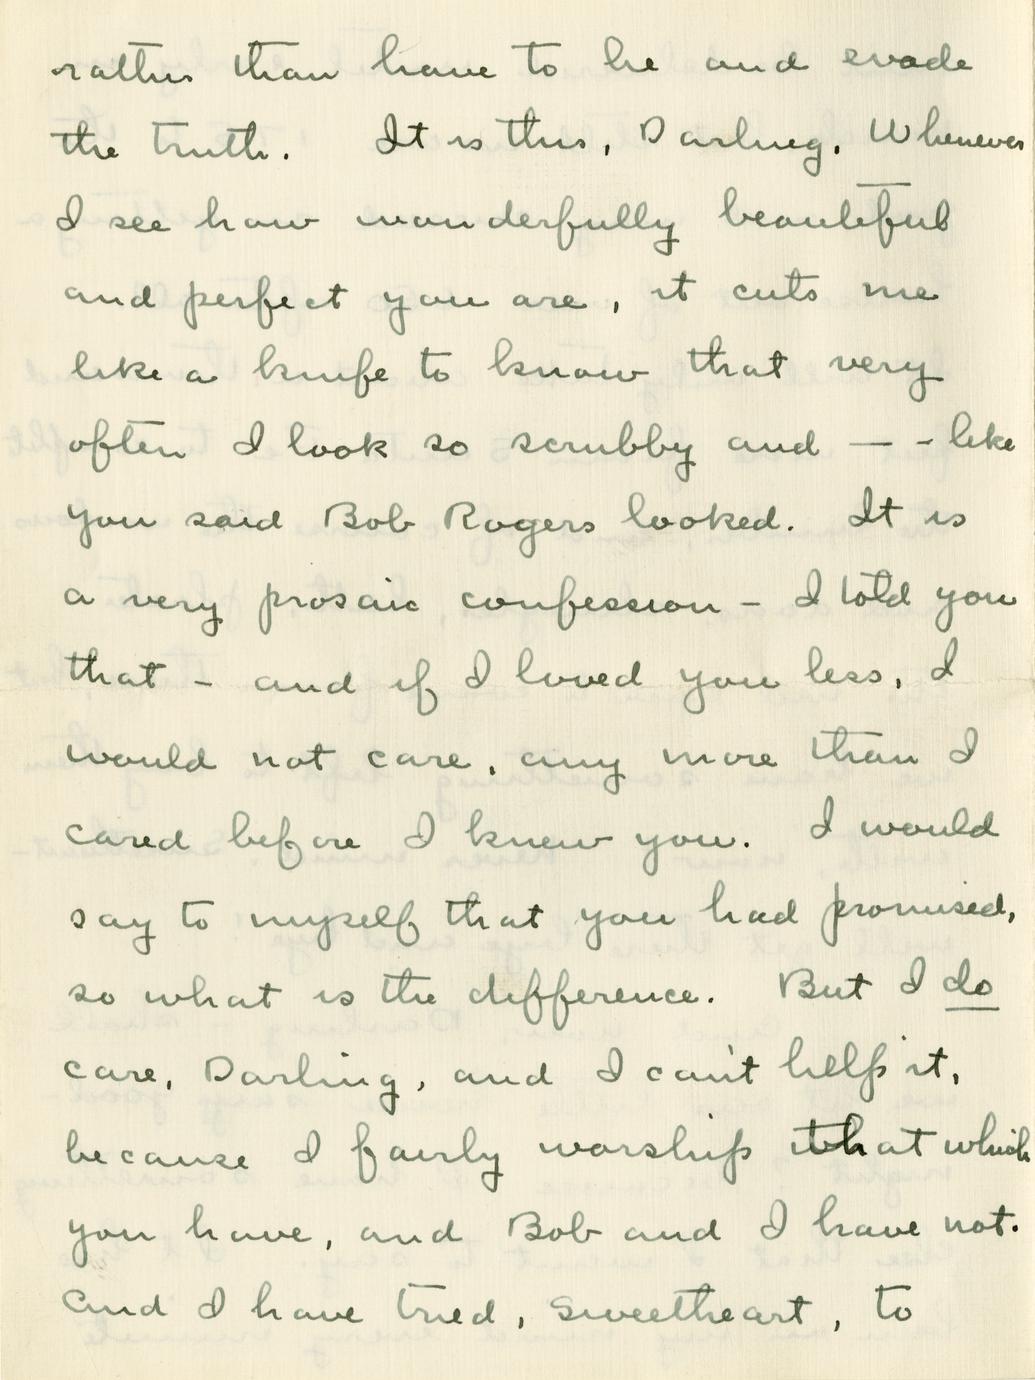 rather than have to lie and evade
the truth. It is this, Darling, Whenever
I see how wonderfully beautiful
and perfect you are, it cuts me
like a knife to know that very
often I look so scrubby and — - like
you said Bob Rogers looked. It is
a very prosaic confession - I told you
that - and if I loved you less, I
would not care, any more than I
cared before I knew you. I would
say to myself that you had promised,
so what is the difference. But I do
care, Darling, and I can't help it,
because I fairly worship that which
you have, and Bob and I have not.
And I have tried, sweetheart, to